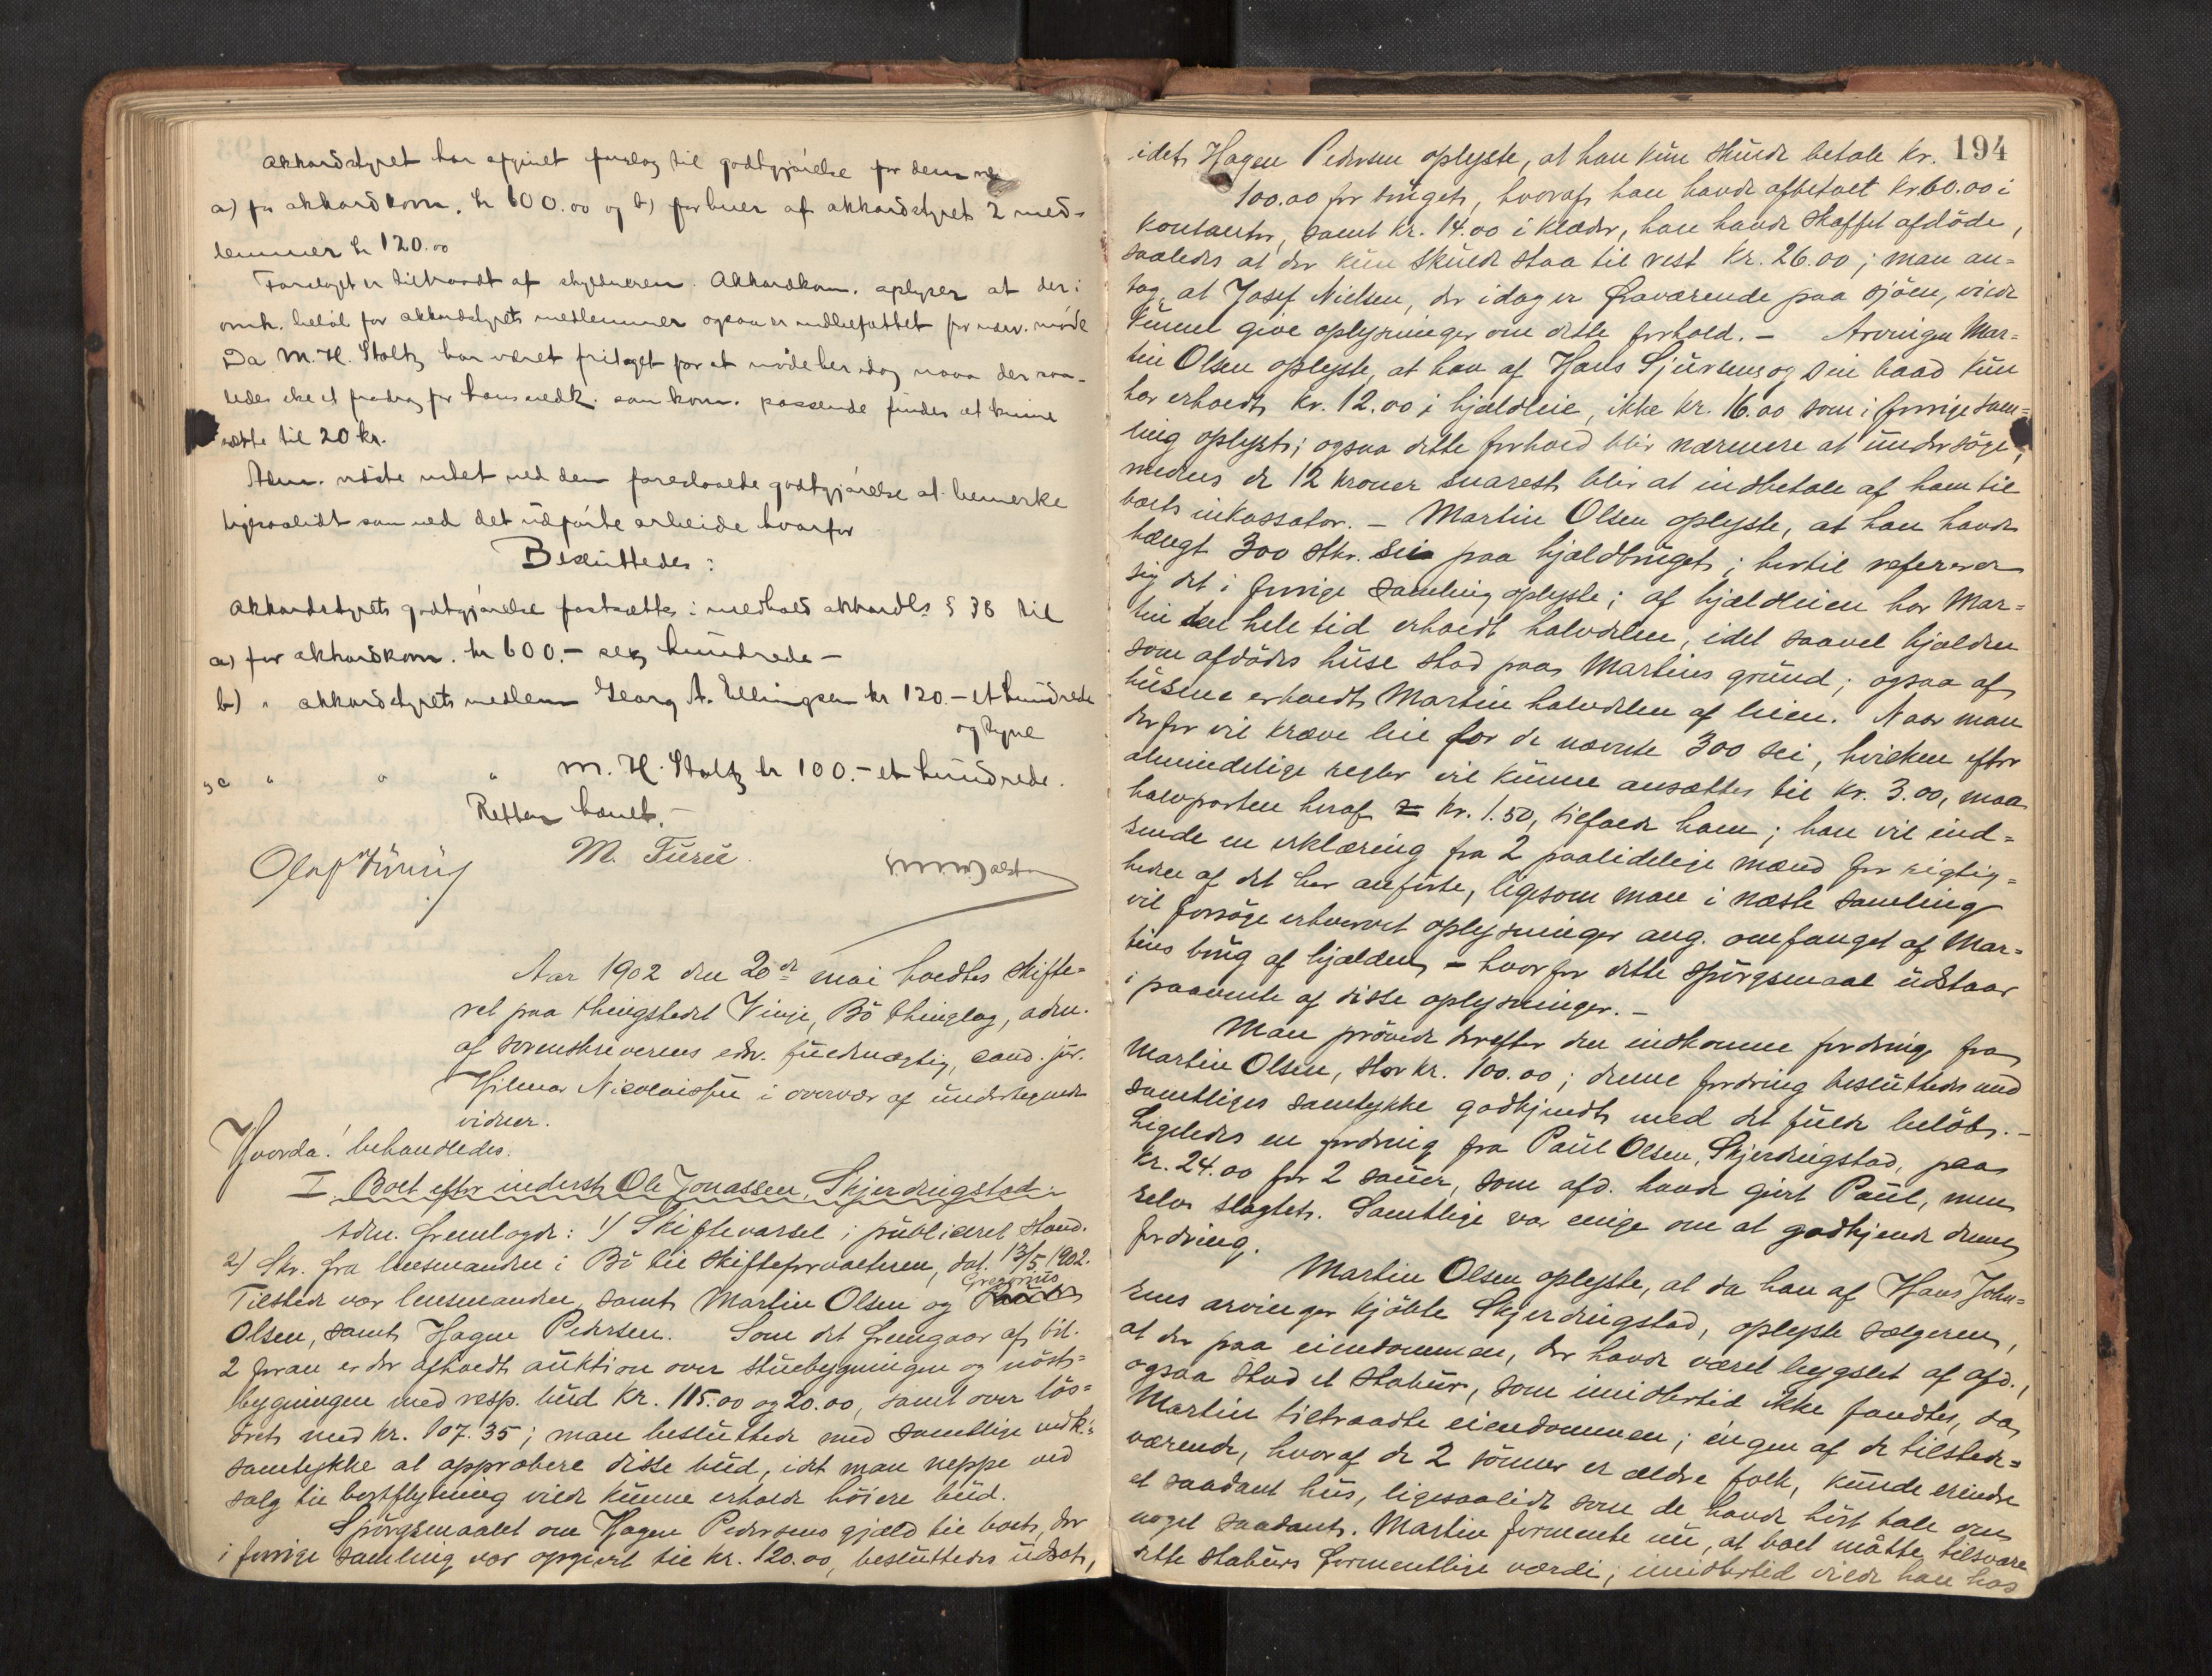 Akkordstyret har afgivet forslag til godtgjørelse for dem
a) for akkordkom. kr 600.00 og b) for hver af akkordstyrets 2 med-
lemmer kr 120.00
Forslaget er tiltraadt af skyldneren. Akkordkom. oplyser at der i
omh. beløb for akkordstyrets medlemmer ogsaa er indbefattet for nærv. møde
Da M. H. Stoltz har været fritaget for at møde her idag maa der saa-
ledes ske et fradrag for hans vedk. som kom. passende finder at kunne
sætte til 20 kr.
Adm. vidste intet ved den foreslaaede godtgjørelse at bemerke
ligesaalidt som ved det udførte arbeide hvorfor
Besluttedes:
Akkordstyrets godtgjørelse fastsættes i medhold akkordls § 38 til
a) for akkordkom. kr 600.- sex hundrede -
b) " akkordstyrets medlem Georg A. Ellingsen kr 120.- et hundrede
og tyve
" c " " " M. H. Stoltz kr 100.- et hundrede.
Retten hævet.
M. Furu
Aar 1902 den 20de mai holdtes skifte-
ret paa thingstedet Vinje, Bö thinglag, adm.
af sorenskriverens edsv. fuldmægtig, cand. jur.
Hilmar Nicolaissen i overvær af undertegnede
vidner.
Hvorda! behandledes.
I. Boet efter inderst Ole Jonassen, Skjerdingstad.
Adm. fremlagde: 1) Skiftevarsel i publiceret stand.
2) Skr. fra lensmanden i Bö til skifteforvalteren, dat. 13/5 1902.
Gregorius
Tilstede var lensmanden, samt Martin Olsen og
Olsen, samt Hagen Pedersen. Som det fremgaar af bil.
2 foran er der afholdt auktion over stuebygningen og nöst-
bygningen med resp. bud kr. 115.00 og 20.00, samt over lös-
öret med kr. 107.35; man besluttede med samtlige vedk.s
samtykke at approbere disse bud, idet man neppe ved
salg til bortflytning vilde kunne erholde höiere bud.
Spörgsmaalet om Hagen Pedersens gjæld til boet, der
i forrige samling var opgivet til kr. 120.00, besluttedes udsat,
194
idet Hagen Pedersen oplyste, at han kun skulde betale kr.
100.00 for bruget, hvoraf han havde afbetalt kr. 60.00 i
kontanter, samt kr. 14.00 i klæder, han havde skaffet afdöde,
saaledes at der kun skulde staa til rest kr. 26.00; man an-
tog, at Josef Nielsen, der idag er fraværende paa sjöen, vilde
kunne give oplysninger om dette forhold. - Arvingen Mar-
tin Olsen oplyste, at han af Hans Sjursens og sin baad kun
har erholdt kr. 12.00 i hjældleie, ikke kr. 16.00 som i forrige sam-
ling oplyst; ogsaa dette forhold blir nærmere at undersöge,
medens de 12 kroner snarest blir at indbetale af ham til
boets inkassator. - Martin Olsen oplyste, at han havde
hængt 300 stkr. sei paa hjældbruget; hertil refererer
sig det i forrige samling oplyste; af hjældleien har Mar-
tin den hele tid erholdt halvdelen, idet saavel hjelden
som afdödes huse stod paa Martins grund; ogsaa af
husene erholdt Martin halvdelen af leien. Naar man
derfor vil kræve leie for de nævnte 300 sei, hvilken efter
almindelige regler vil kunne ansættes til kr. 3.00, maa
halvparten heraf = kr. 1.50, tilfalde ham; han vil ind-
sende en erklæring fra 2 paalidelige mænd for rigtig-
heden af det her anförte, ligesom man i næste samling
vil forsöge erhvervet oplysninger ang. omfanget af Mar-
tins brug af hjælden, - hvorfor dette spörgsmaal udstaar
i paavente af disse oplysninger. -
Man prövede derefter den indkomne fordring fra
Martin Olsen, stor kr. 100.00; denne fordring besluttedes med
samtliges samtykke godkjendt med det fulde belöb. -
Ligeledes en fordring fra Paul Olsen, Skjerdingstad, paa
kr. 24.00 for 2 sauer, som afd. havde givet Paul, men
selv slagtet. Samtlige var enige om at godkjende denne
fordring.
Martin Olsen oplyste, at da han af Hans John-
sens arvinger kjöbte Skjerdingstad, oplyste sælgeren,
at der paa eiendommen, der havde været bygslet af afd.,
ogsaa stod et stabur, som imidlertid ikke fandtes, da
Martin tiltraadte eiendommen; ingen af de tilstede-
værende, hvoraf de 2 sönner er ældre folk, kunde erindre
et saadant hus, ligesaalidt som de havde hört tale om
noget saadant. Martin formente nu, at boet måtte tilsvare
dette staburs formentlige værdi; imidlertid vilde han hos